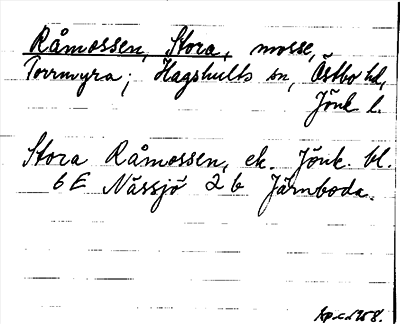 Råmossen, Stora, mosse,
Torrmyra; Hagshults sn, Östbo hd,
Jönk l.
Stora Råmossen, ek. Jönk. bl.
6E Nässjö 2b Järnboda.